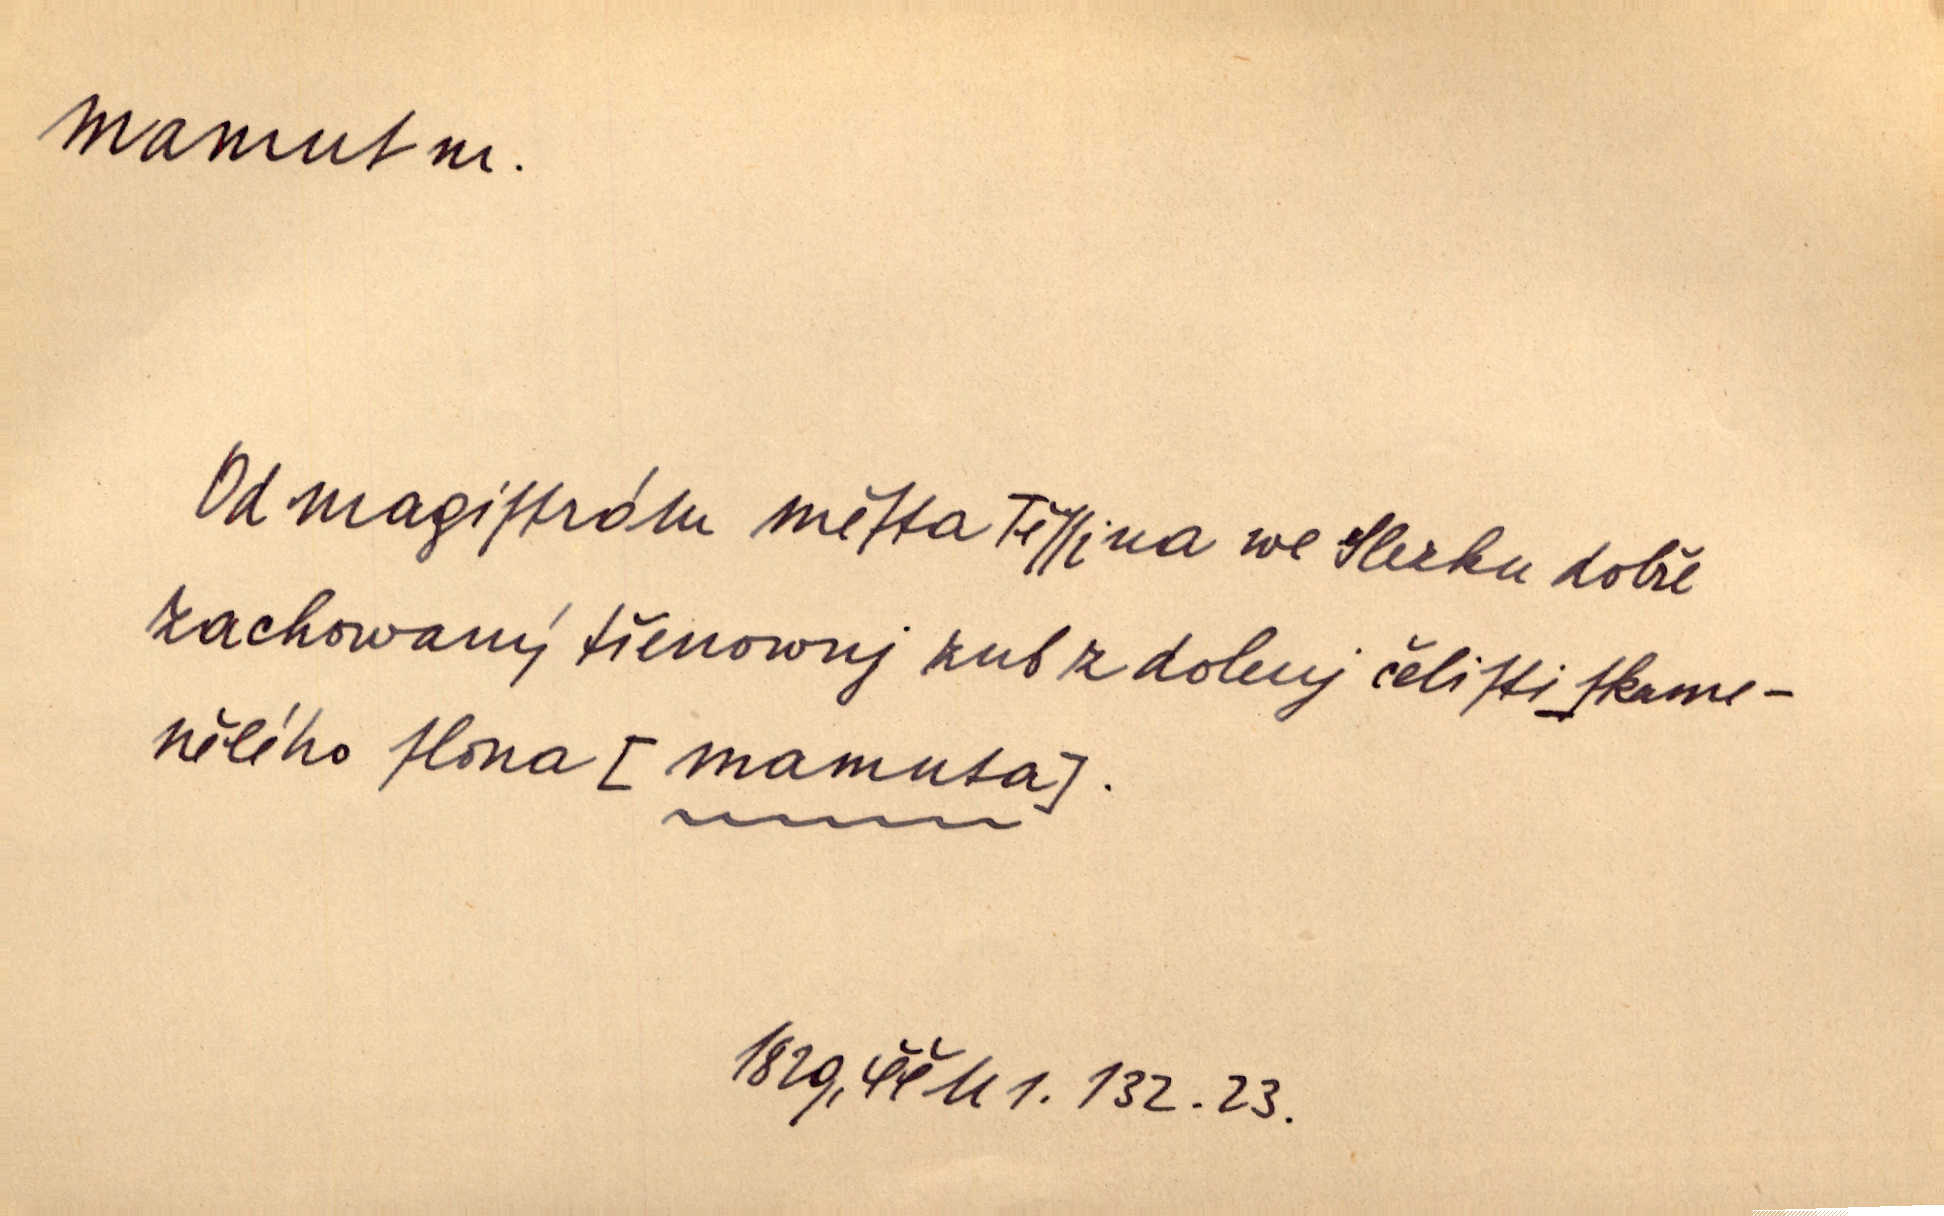 Mamut m.
Od magiſtrátu měſta Těſſjna we Slezku dobře
zachowaný třenownj zub z dolenj čeliſti ſkame-
nělého ſlona [mamuta].
1829, 1. 132. 23.